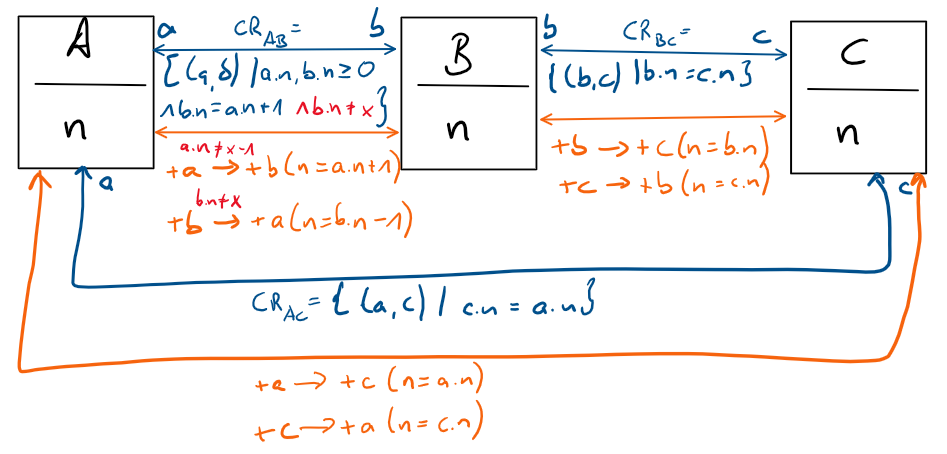 A
n
a CR_AB= b
{(a,b) | a.n, b.n ≥ 0
∧ b.n = a.n+1 ∧ b.n ≠ x}
a.n ≠ x-1
+a → +b (n = a.n+1)
b.n ≠ x
+b → +a (n = b.n -1)
B
n
b CR_BC= c
{(b,c) | b.n = c.n}
+b → +c (n = b.n)
+c → +b (n = c.n)
C
n
a
c
CR_AC = { (a,c) | c.n = a.n}
+a → +c (n = a.n)
+c → +a (n = c.n)